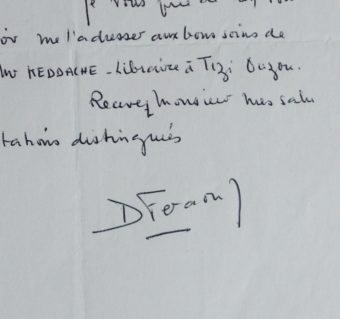 je vous prie de
oir me l'adresser aux bons soins de
Mr KEDDACHE - libraire à Tizi Ouzou.
Recevez Monsieur mes salu
tations distingués
DFeraoun